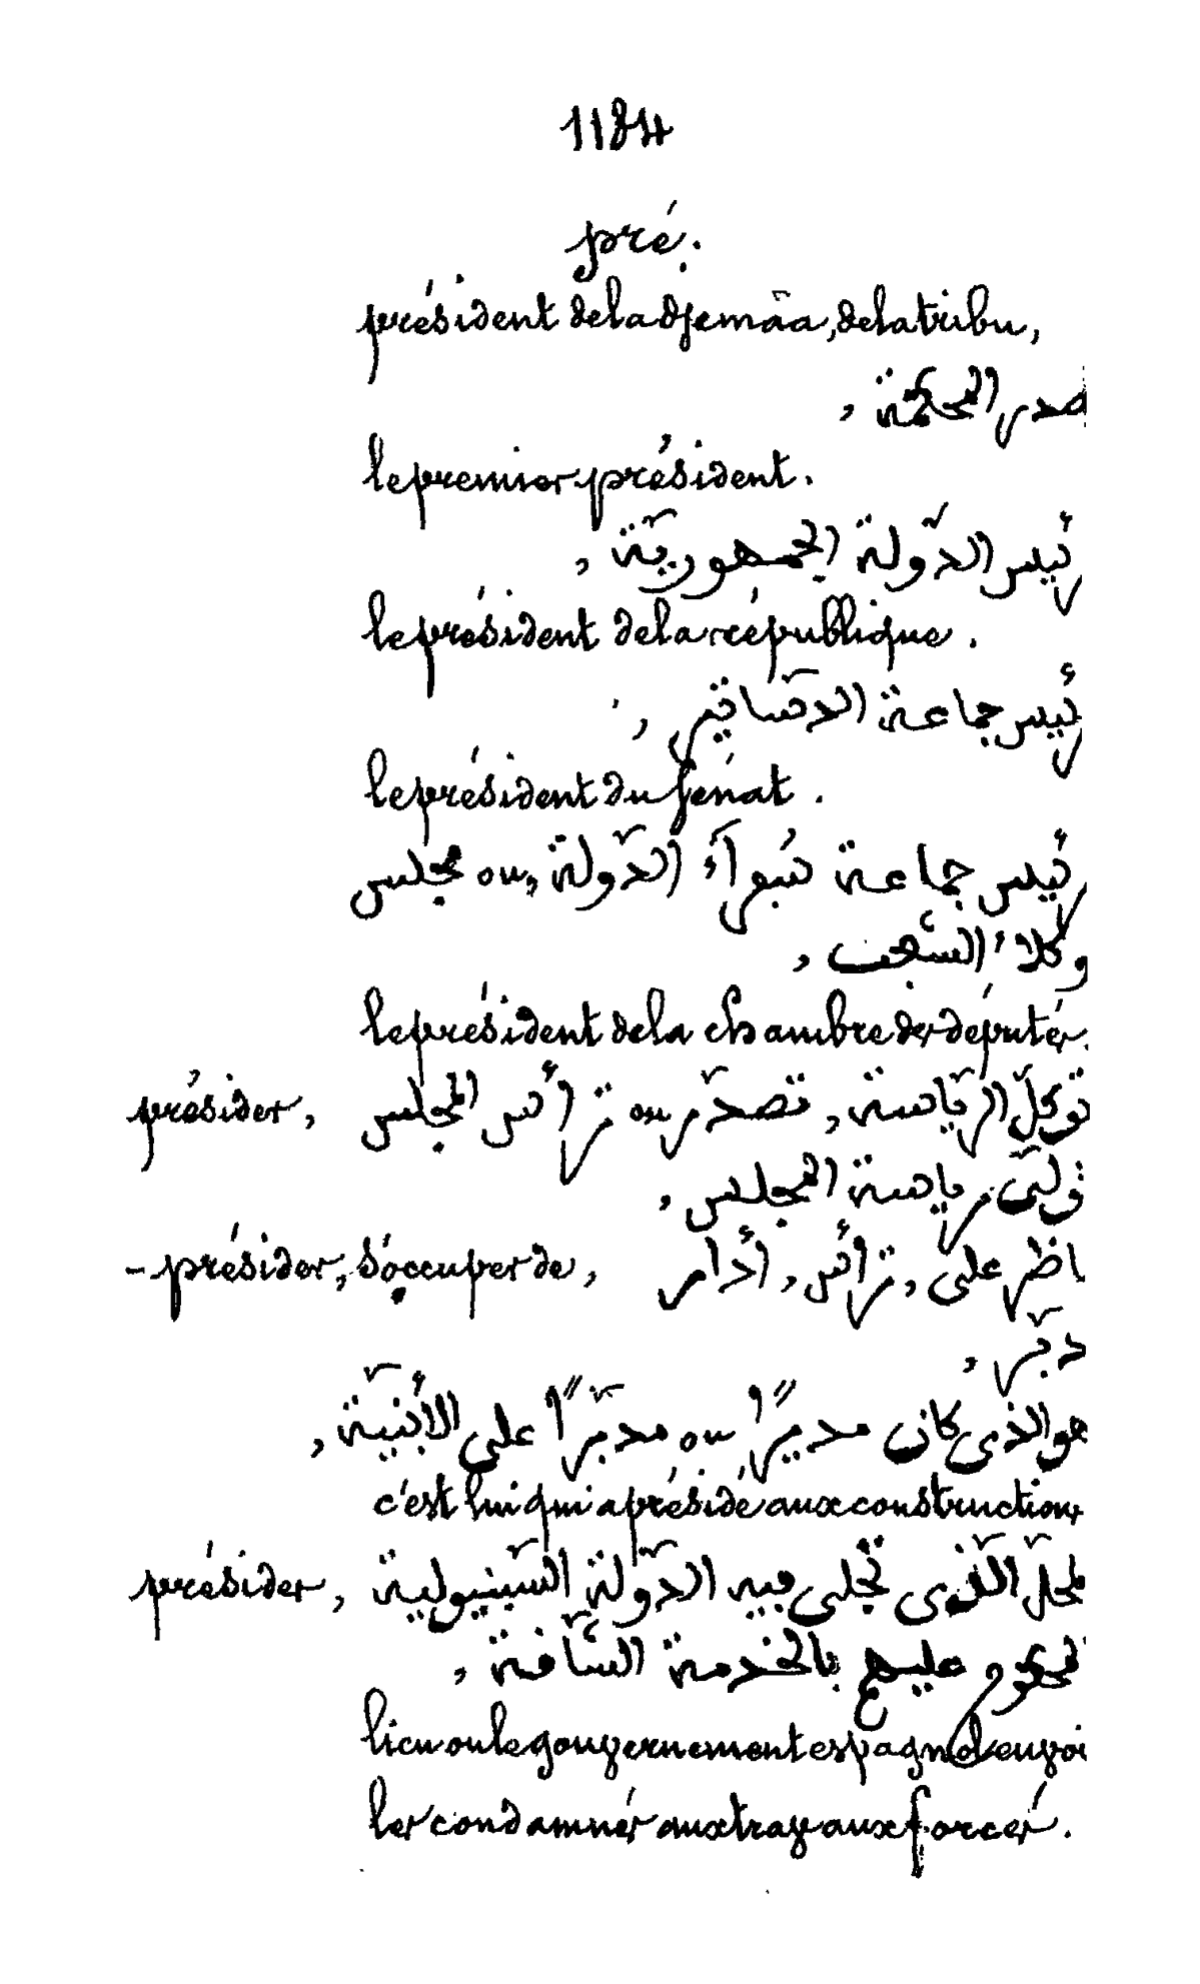 1184
pré.
président de la djemâa, de la tribu,
صدر المحكمة ,
le premier président.
رئيس الدّولة الجمهوريّة ,
le président de la république.
رئيس جماعة
le président du Sénat.
رئيس جماعة الدّولة, ou مجلس
وكلاء الشعب ,
le président de la chambre des députés.
présider, توكّل الرّياسة, تصدّر ou ترأس المجلس
تولّى رياسة المجلس ,
- présider, s'occuper de, ناظر على, ترأس, أدار
دبّر ,
هو الذي كان مديرًا ou مدبّرًا على الأبنيّة ,
c'est lui qui a présidé aux constructions
présider, محلّ الّذي تجلى فيه الدّولة السّبنيولية
المحكوم عليهم بالخدمة الشّاقة ,
lieu ou le gouvernement espagnol envoi
les condamnés aux travaux forcés.